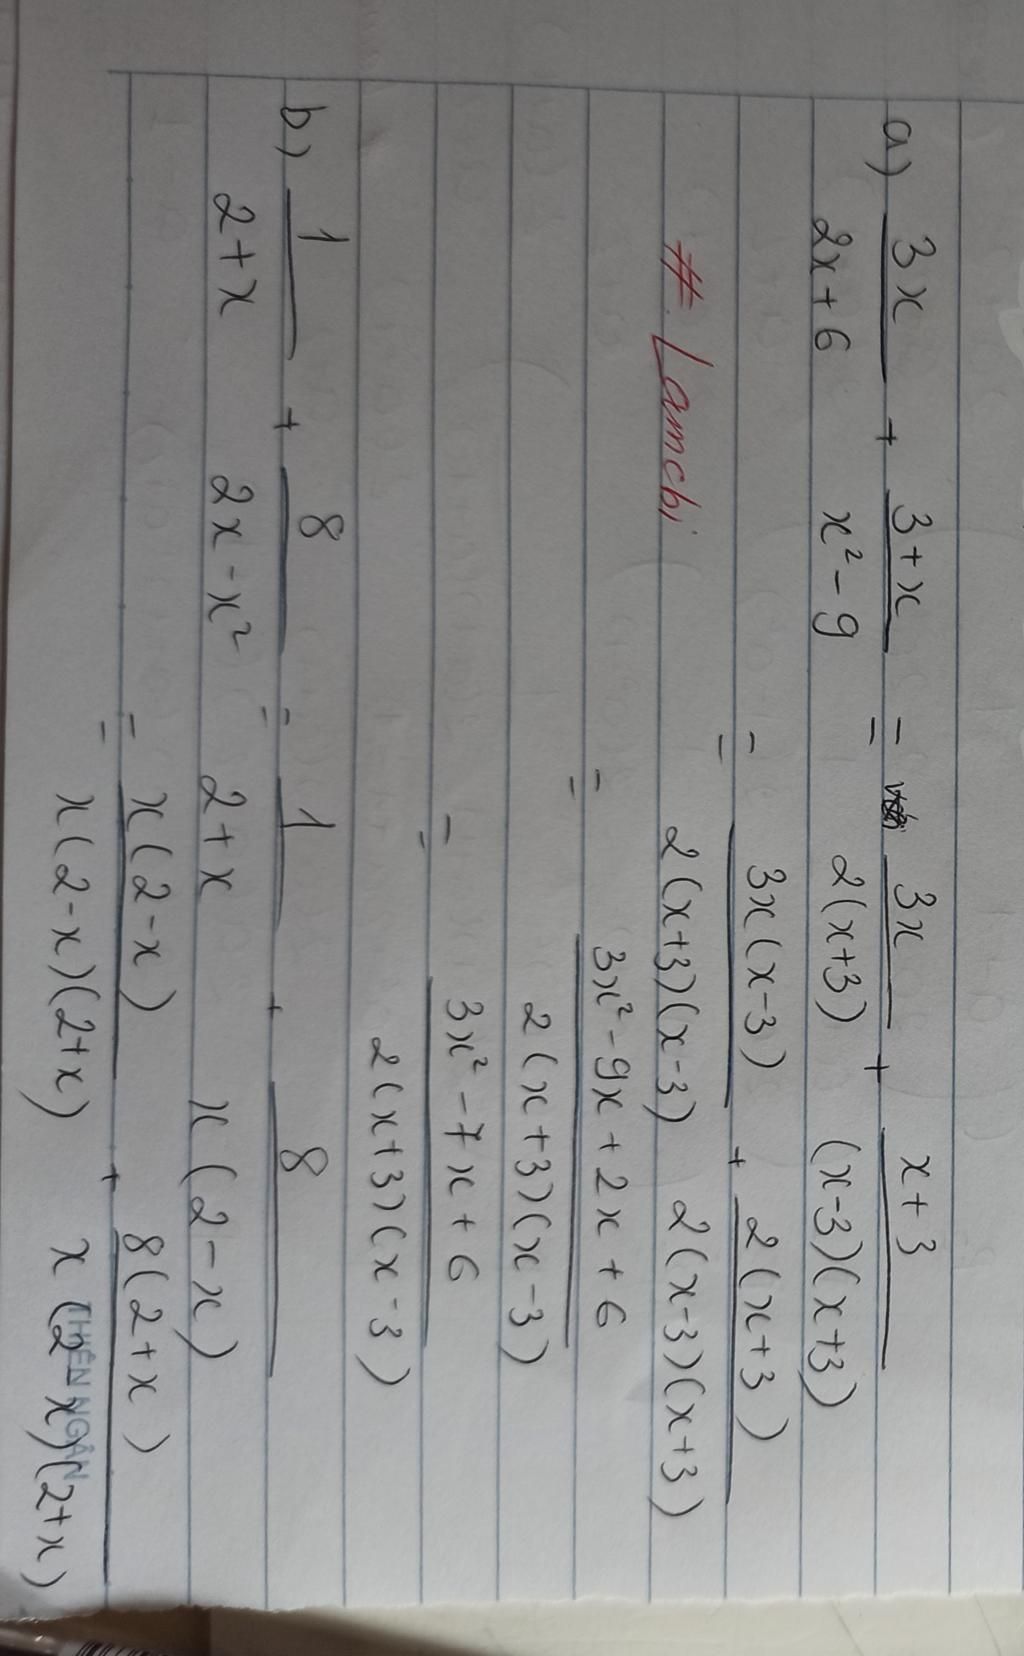 a) 3x/(2x+6) + (3+x)/(x²-9) = 3x/(2(x+3)) + (x+3)/((x-3)(x+3))
= 3x(x-3)/(2(x+3)(x-3)) + 2(x+3)/(2(x-3)(x+3))
# Lamchi
= (3x²-9x+2x+6)/(2(x+3)(x-3))
= (3x²-7x+6)/(2(x+3)(x-3))
b) 1/(2+x) + 8/(2x-x²) = 1/(2+x) + 8/(x(2-x))
= x(2-x)/(x(2-x)(2+x)) + 8(2+x)/(x(2-x)(2+x))
THIÊN NGÂN